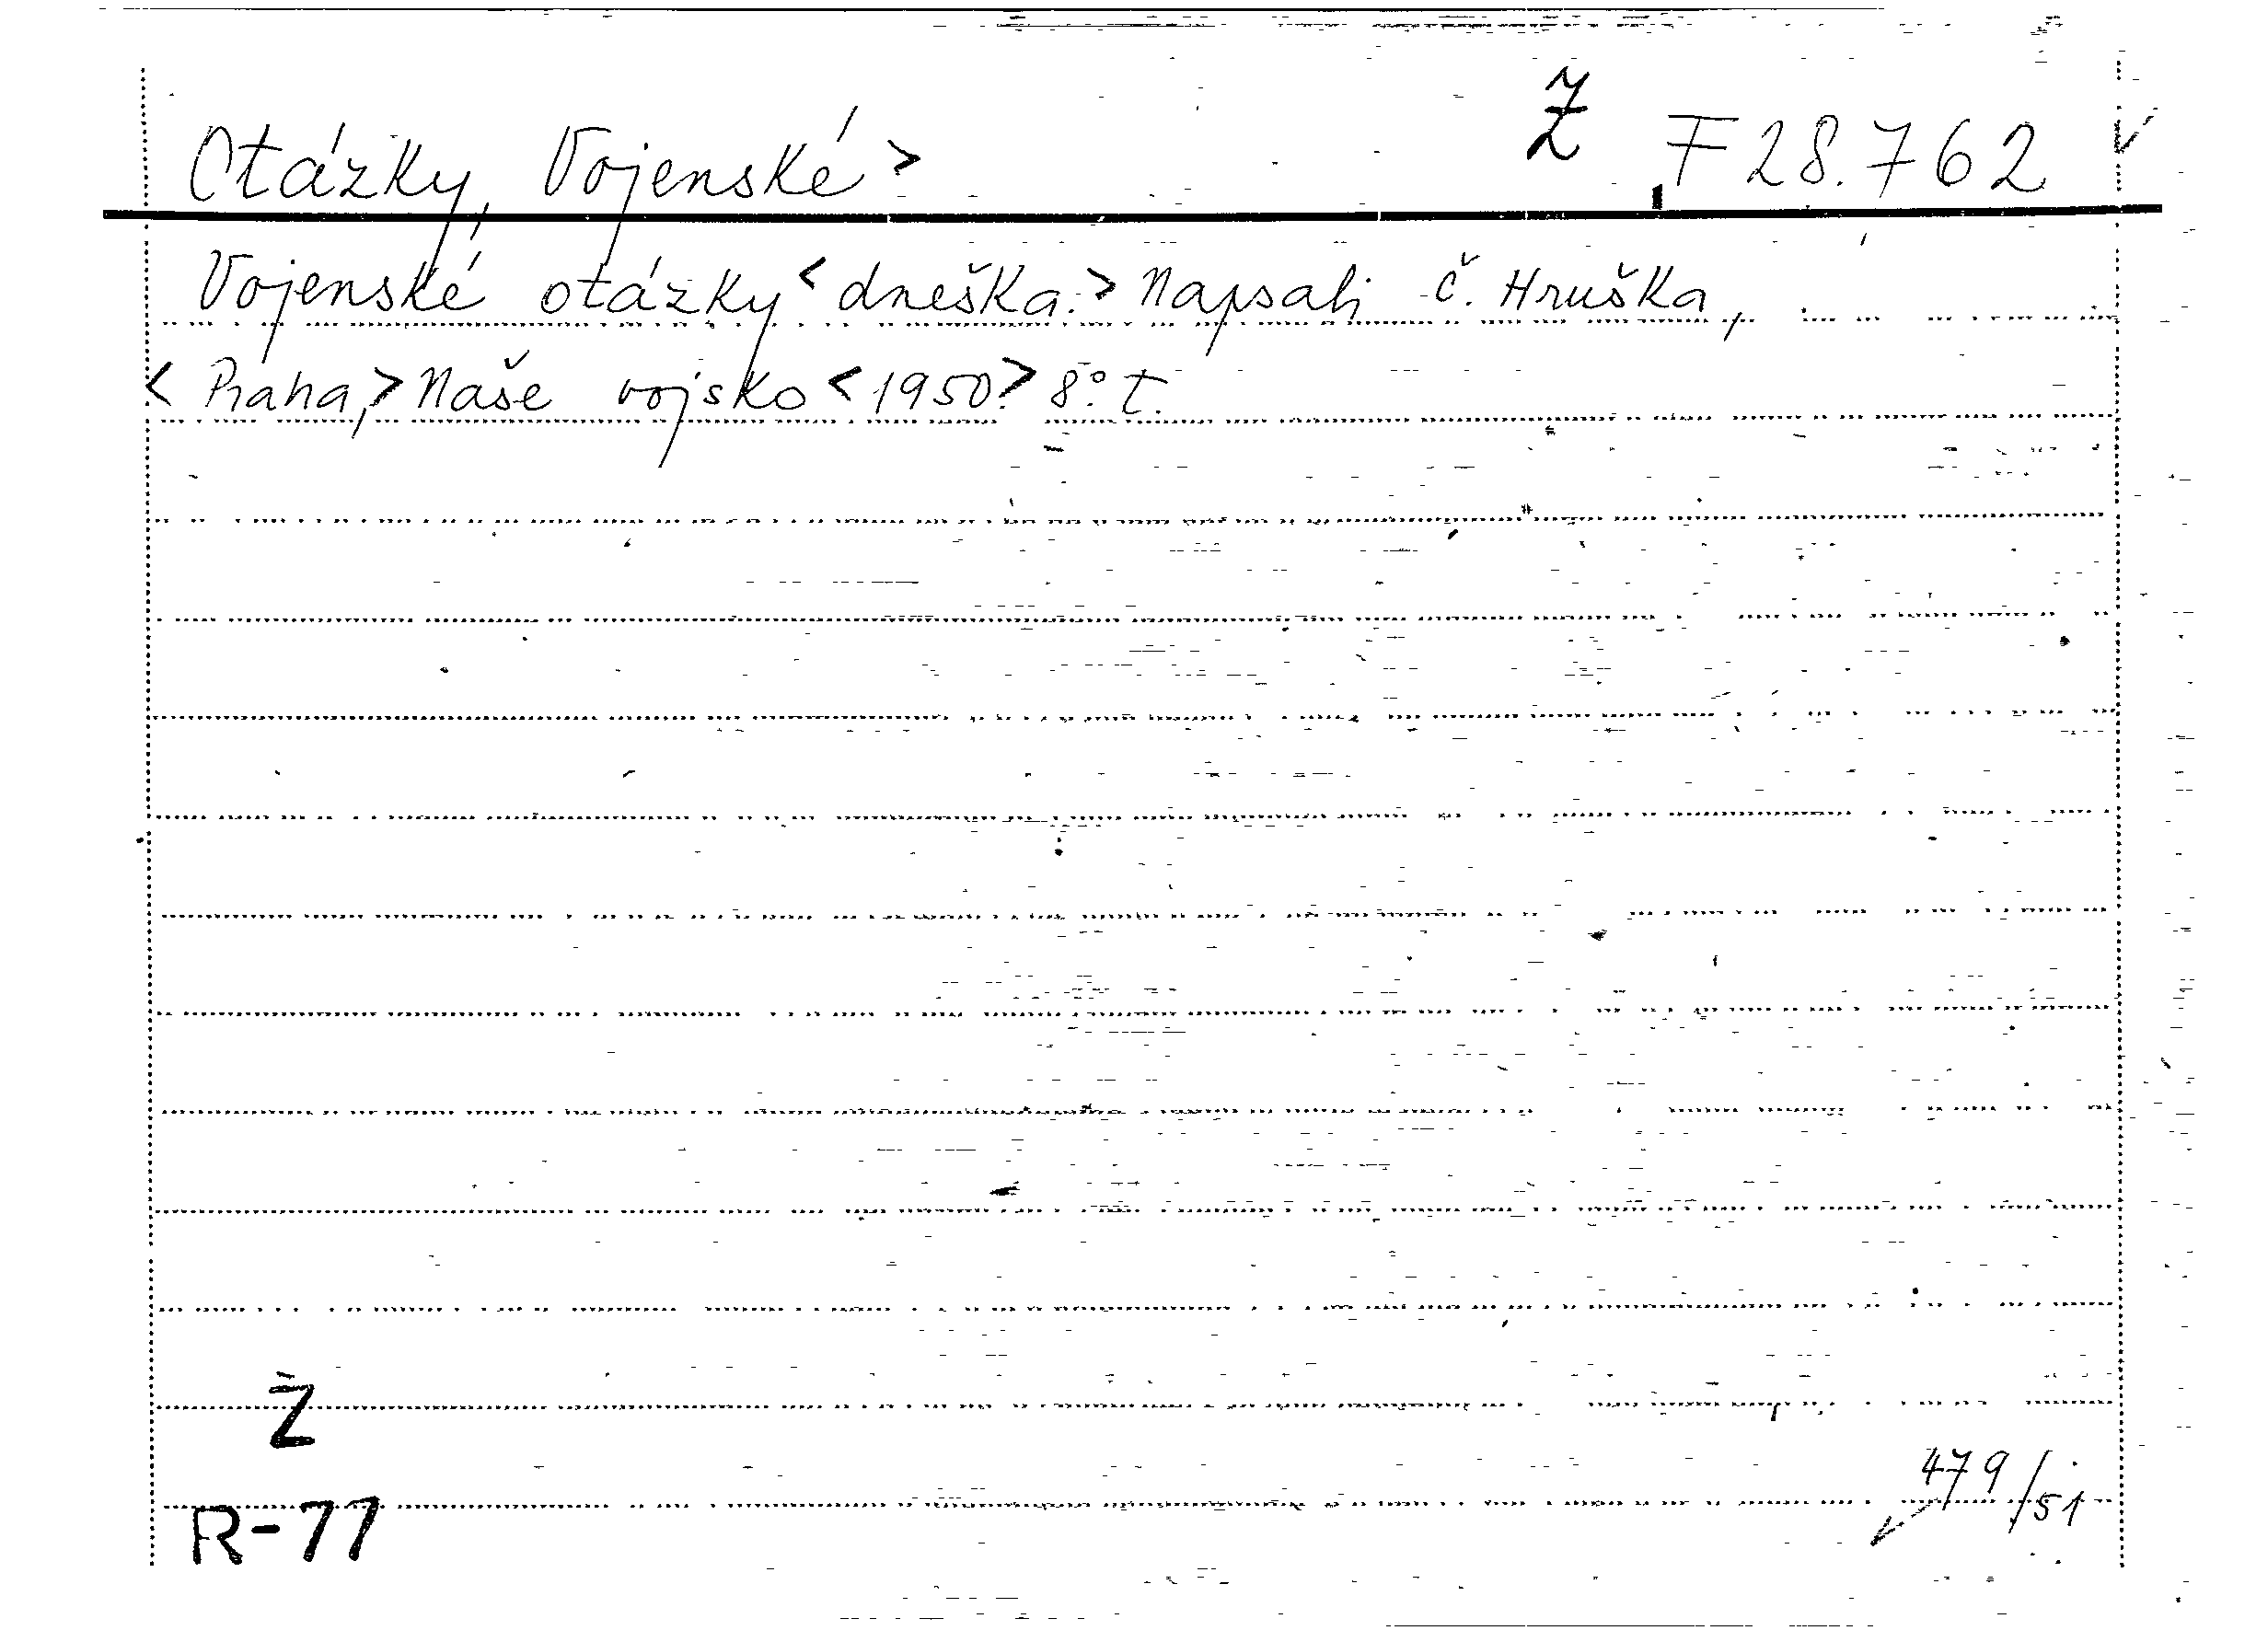 Otázky, Vojenské > Ž F 28.762
Vojenské otázky < dneška. > Napsali Č. Hruška,
< Praha, > Naše vojsko < 1950. > 8° t.
Ž
479/51
R-77